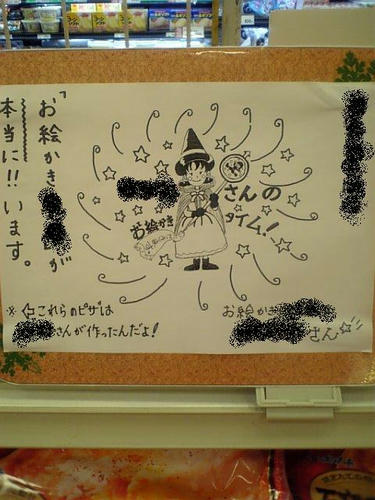 「お絵かき
が
本当に!!います。
さんの
お絵かき
タイム!
お絵かき
さん☆
※ ⇦これらのピザは
さんが作ったんだよ!